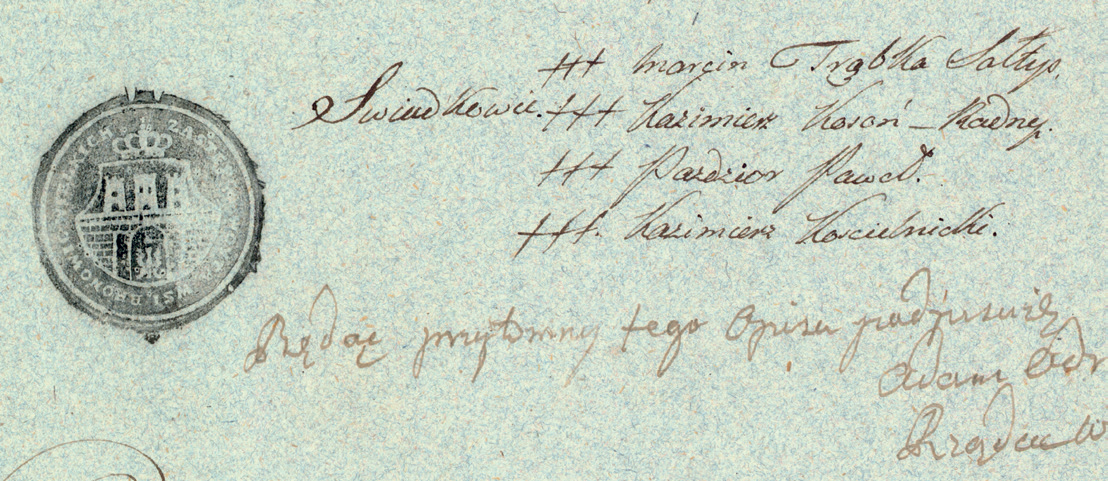 +++ Marcin Trąbka Sołtys.
Swiadkowie. +++ Kazimierz Kosoń – Radny.
+++ Pazdzior Paweł.
+++. Kazimierz Koscielnicki.
Będąc przytomny tego Opisu podpisuię
Adam
Rządca W